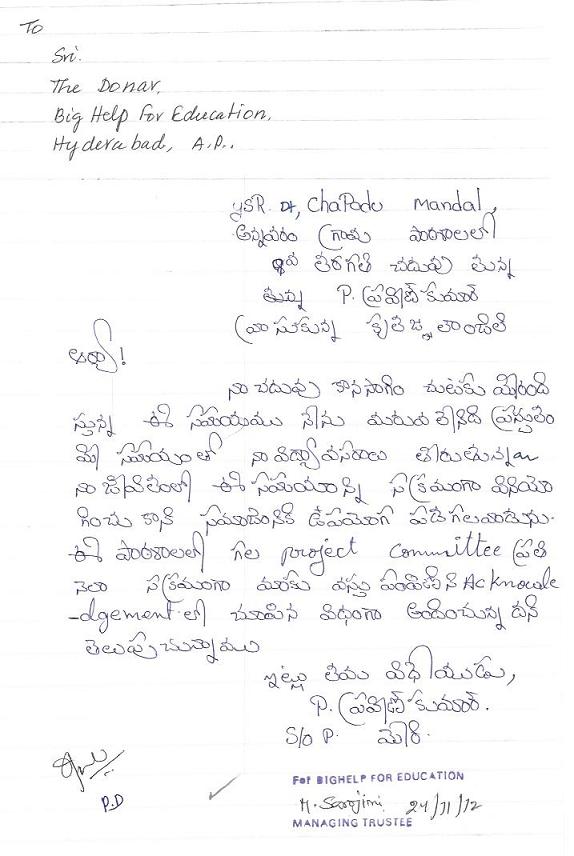 To
Sri.
The Donar,
Big Help For Education,
Hyderabad, A.P..
YSR Dt, ChaPadu Mandal,
అన్నవరం గ్రామ పాఠశాలలో
8వ తరగతి చదువు తున్న
తున్న P. ప్రవీణ్ కుమార్
వ్రాసుకున్న కృతజ్ఞతాంజలి
ఆర్యా!
నా చదువు కొనసాగిం చుటకు మీరంది
స్తున్న ఈ సహాయము నేను మరువ లేనిది ప్రస్తుతం
మీ సహాయం తో నా విద్యావసరాలు తీరుతున్నాయి
నా జీవితంలో ఈ సహాయాన్ని సక్రమంగా వినియో
గించు కొని సమాజానికి ఉపయోగ పడ గలవాడును.
ఈ పాఠశాలలో గల project Committee ప్రతి
నెలా సక్రమంగా మాకు వస్తు పంపిణీ ని Acknowle
-dgement లో చూపిన విధంగా అందించుచున్న దని
తెలుపు చున్నాము
ఇట్లు తమ విధేయుడు,
P. ప్రవీణ్ కుమార్.
S/o P. మౌళి.
P.D
For BIGHELP FOR EDUCATION
M. Sarojini 24/11/12
MANAGING TRUSTEE